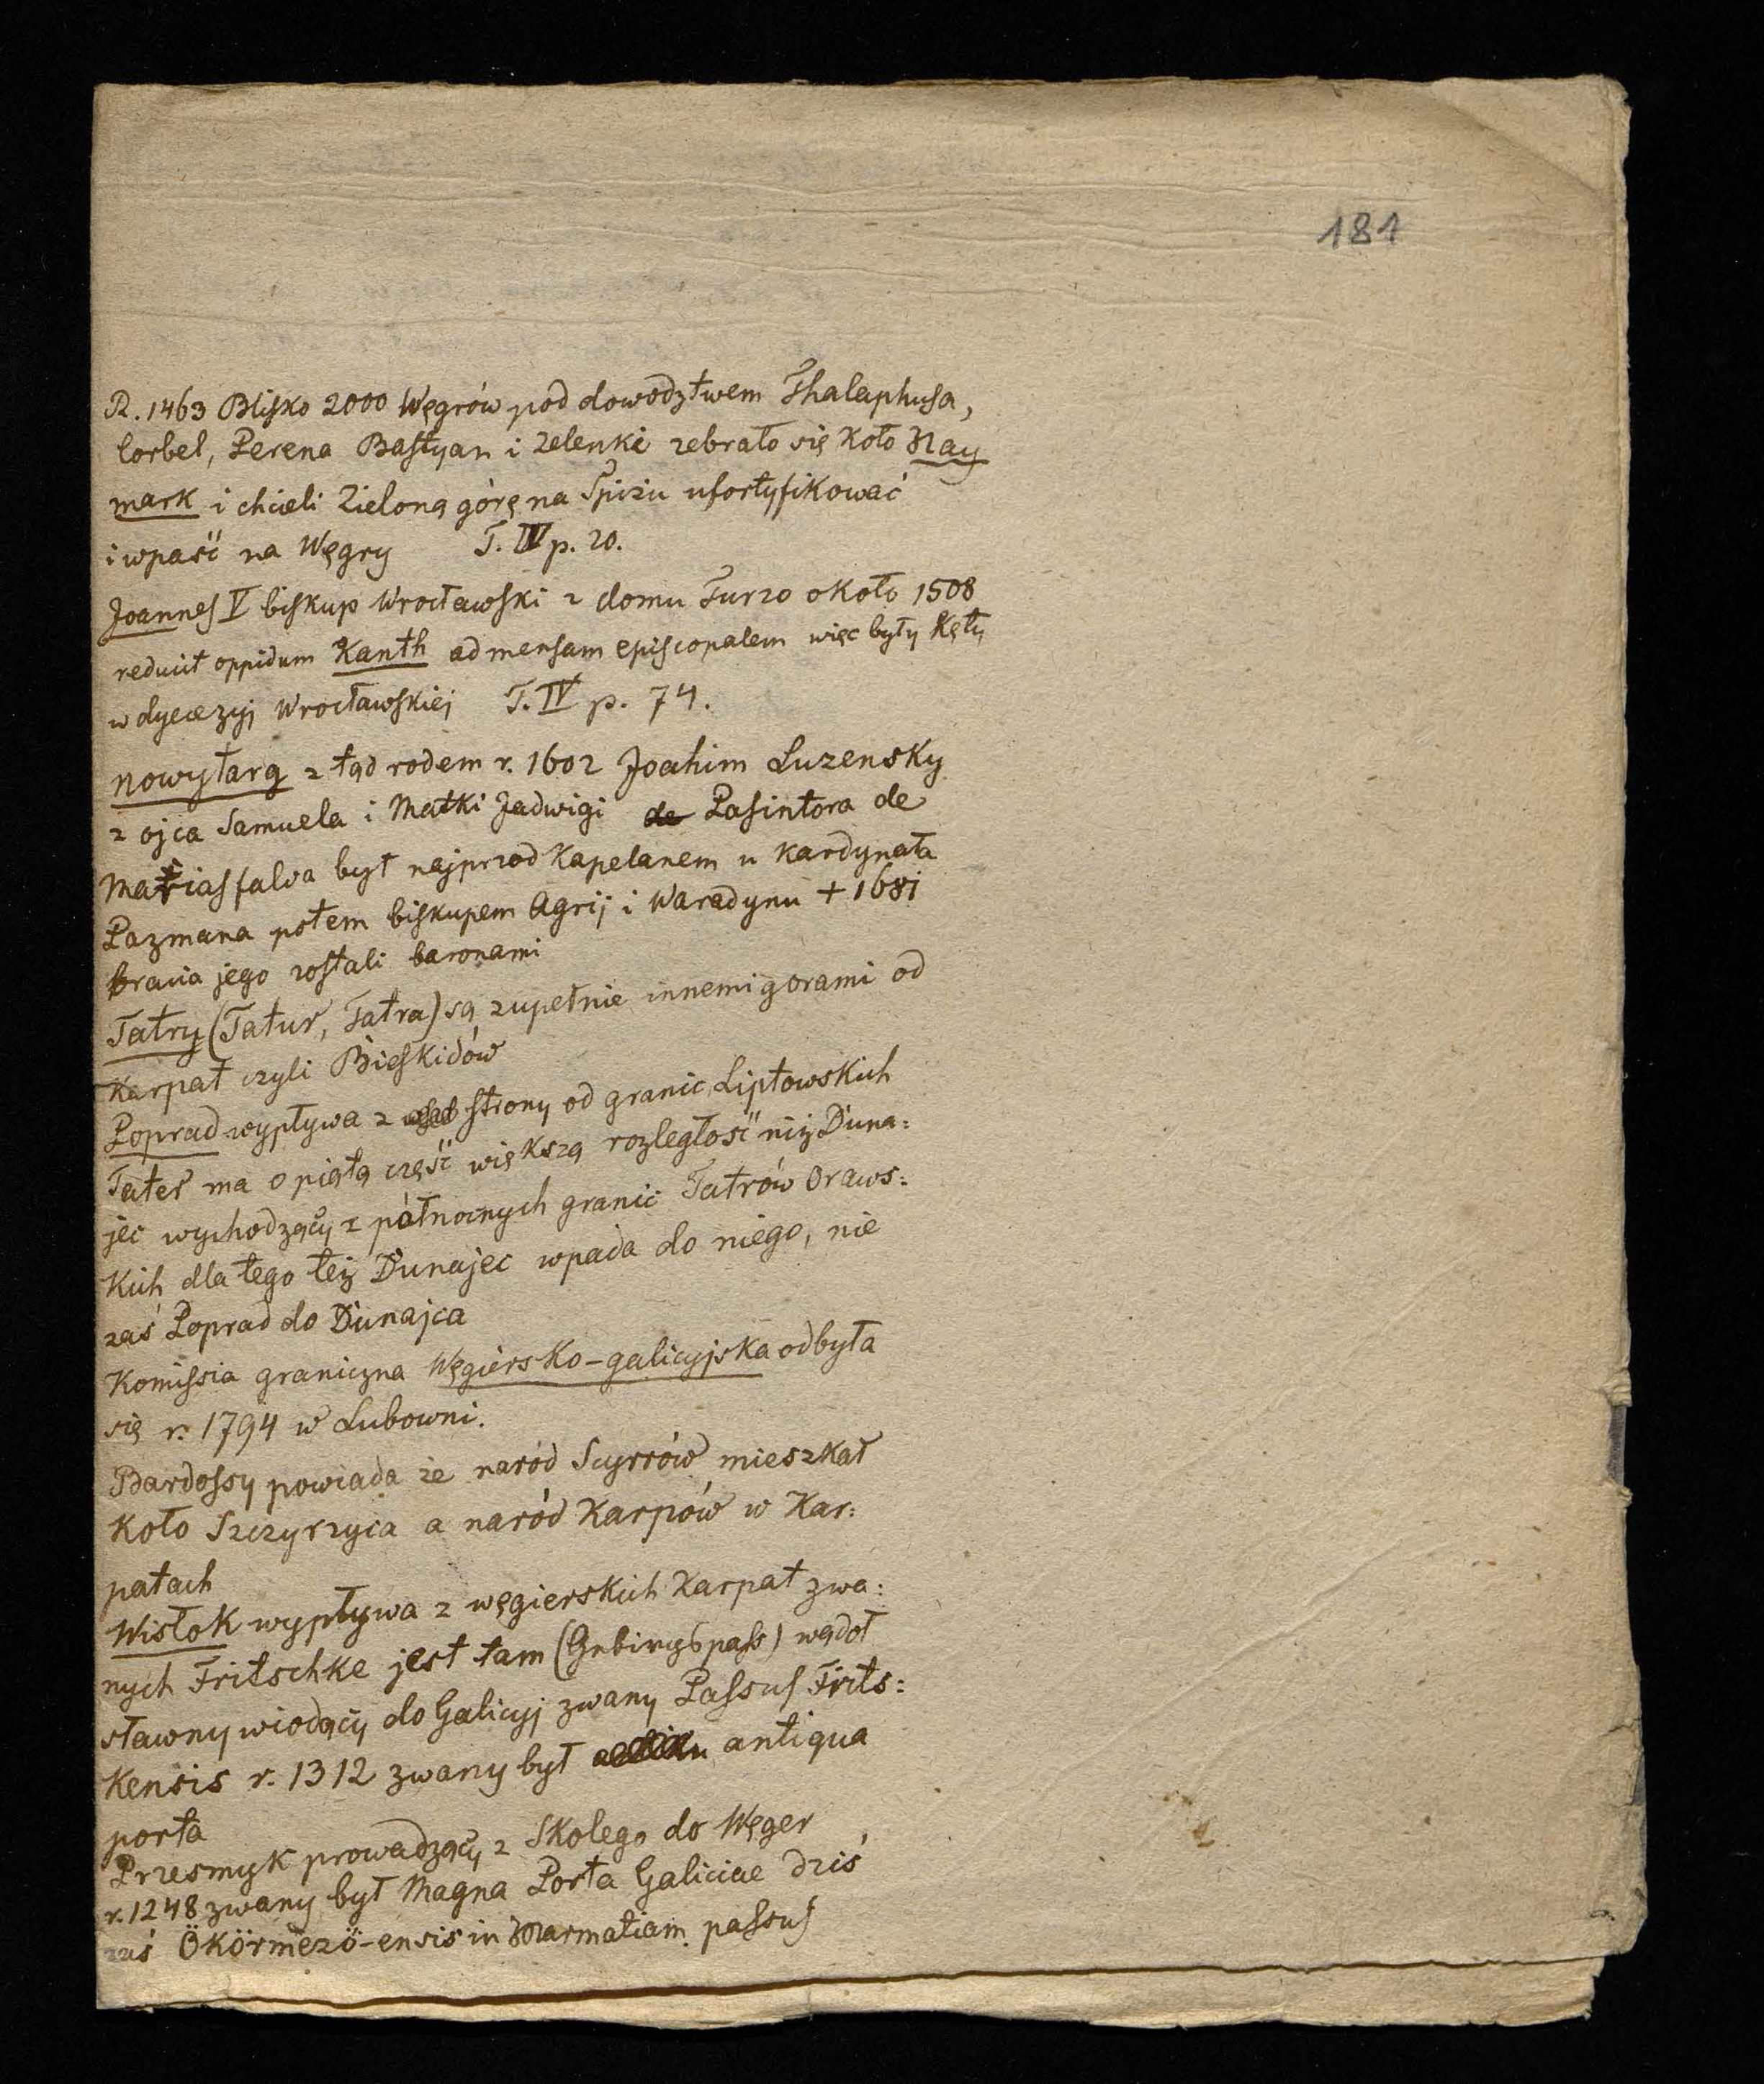 181
R. 1463 Blisko 2000 Węgrów pod dowodztwem Thalaphusa,
Corbel, Perena Bastyan i Zelenki zebrało się koło Nay
mark i chcieli Zieloną górę na Spiżu ufortyfikować
i wpaść na Węgry T. IV p. 20.
Joannes V biskup Wrocławski z domu Turzo około 1508
reducit oppidum Kanth ad mensam episcopalem więc były Kęty
w dyecezyj Wrocławskiej T. IV p. 74.
Nowytarg z tąd rodem r. 1602 Joahim Luzensky
z ojca Samuela i Matki Jadwigi de Pasintora de
Matiasfalva był najprzod Kapelanem u Kardynała
Pazmana potem biskupem Agrij i Waradynu + 1681
bracia jego zostali baronami
Tatry (Tatur, Tatra) są zupełnie innemi gorami od
Karpat czyli Bieskidów
Poprad wypływa z strony od granic Liptowskich
Tater ma o piątą część większą rozległość niż Duna:
jec wychodzący z północnych granic Tatrów Oraws:
kich dla tego też Dunajec wpada do niego, nie
zaś Poprad do Dunajca
Komissia graniczna Węgiersko-galicyjska odbyła
się r. 1794 w Lubowni.
Bardossy powiada że naród Scyrrów mieszkał
koło Szczyrzyca a naród Karpów w Kar:
patach
Wisłok wypływa z węgierskich Karpat zwa:
nych Fritschke jest tam (Gebirgspass) wądoł
sławny wiodący do Galicyj zwany Passus Frits:
kensis r. 1312 zwany był antiqua
porta
Przesmyk prowadzący z Skolego do Węger
r. 1248 zwany był Magna Porta Galiciae dziś
zaś Ökörmezö-ensis in Marmatiam passus